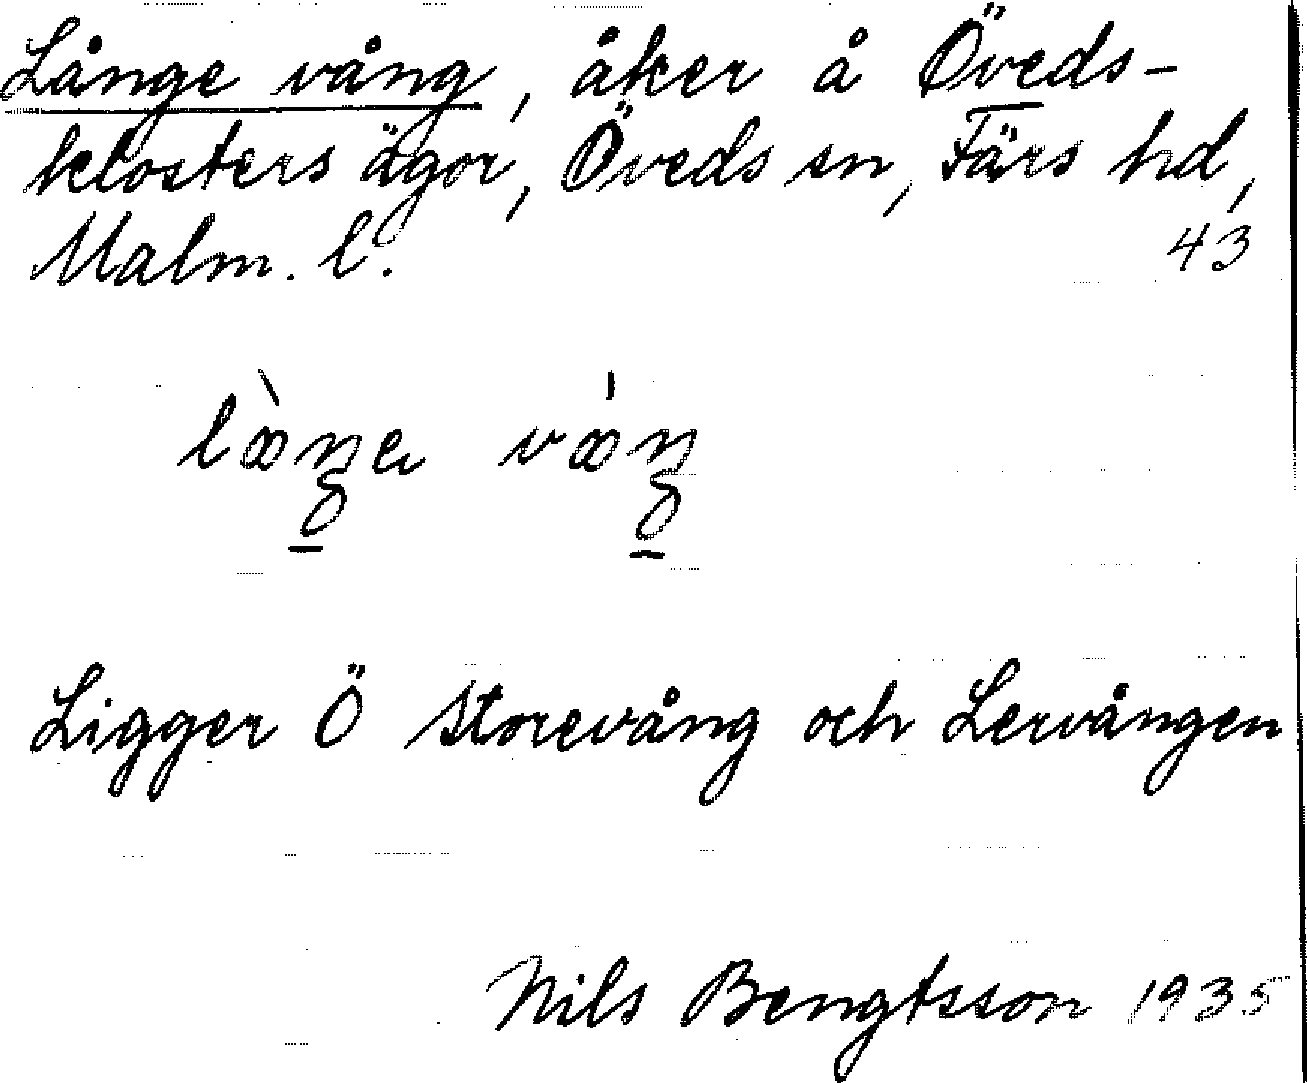 Långe vång, åker å Öveds-
klosters ägor, Öveds sn, Färs hd,
Malm. l.
43
Ligger Ö Storevång och Lervången
Nils Bengtsson 1935